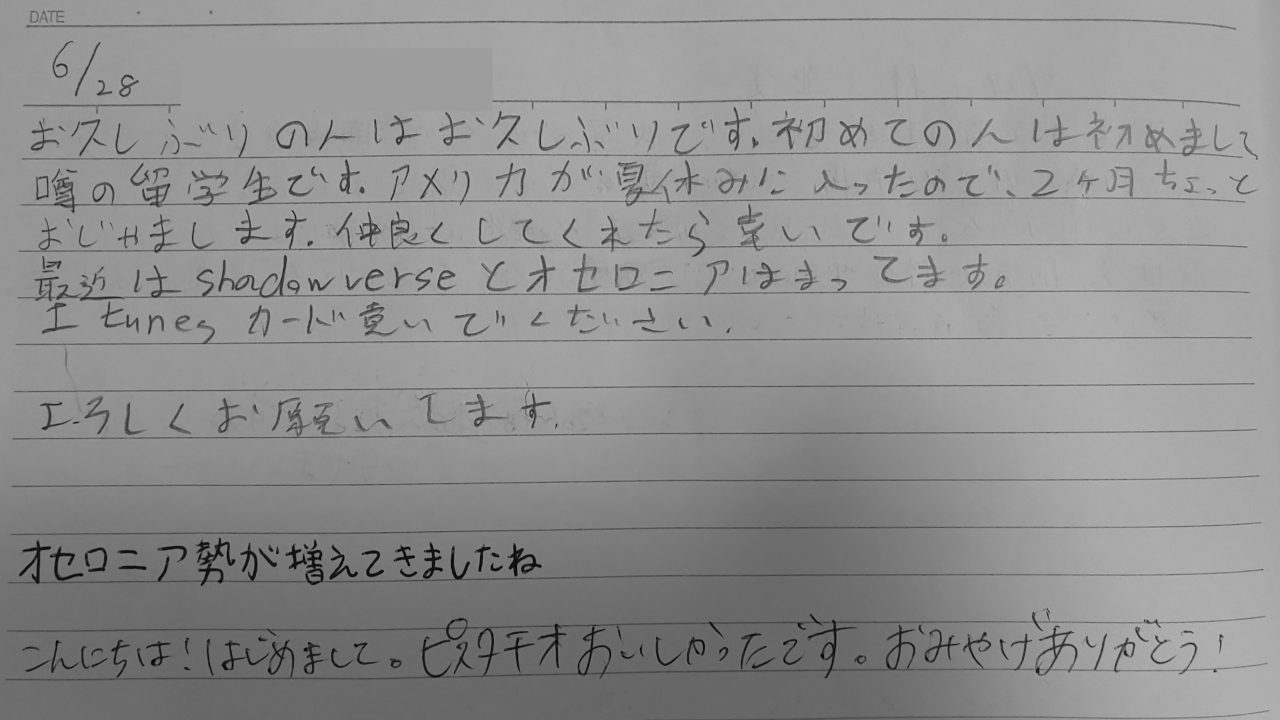 DATE
6/28
お久しぶりの人はお久しぶりです。初めての人は初めまして、
噂の留学生です。アメリカが夏休みに入ったので、2ヶ月ちょっと
おじゃまします。仲良くしてくれたら幸いです。
最近はshadowverseとオセロニアはまってます。
I tunesカード貢いでください。
よろしくお願いします。
オセロニア勢が増えてきましたね
こんにちは!はじめまして。ピスタチオおいしかったです。おみやげありがとう!